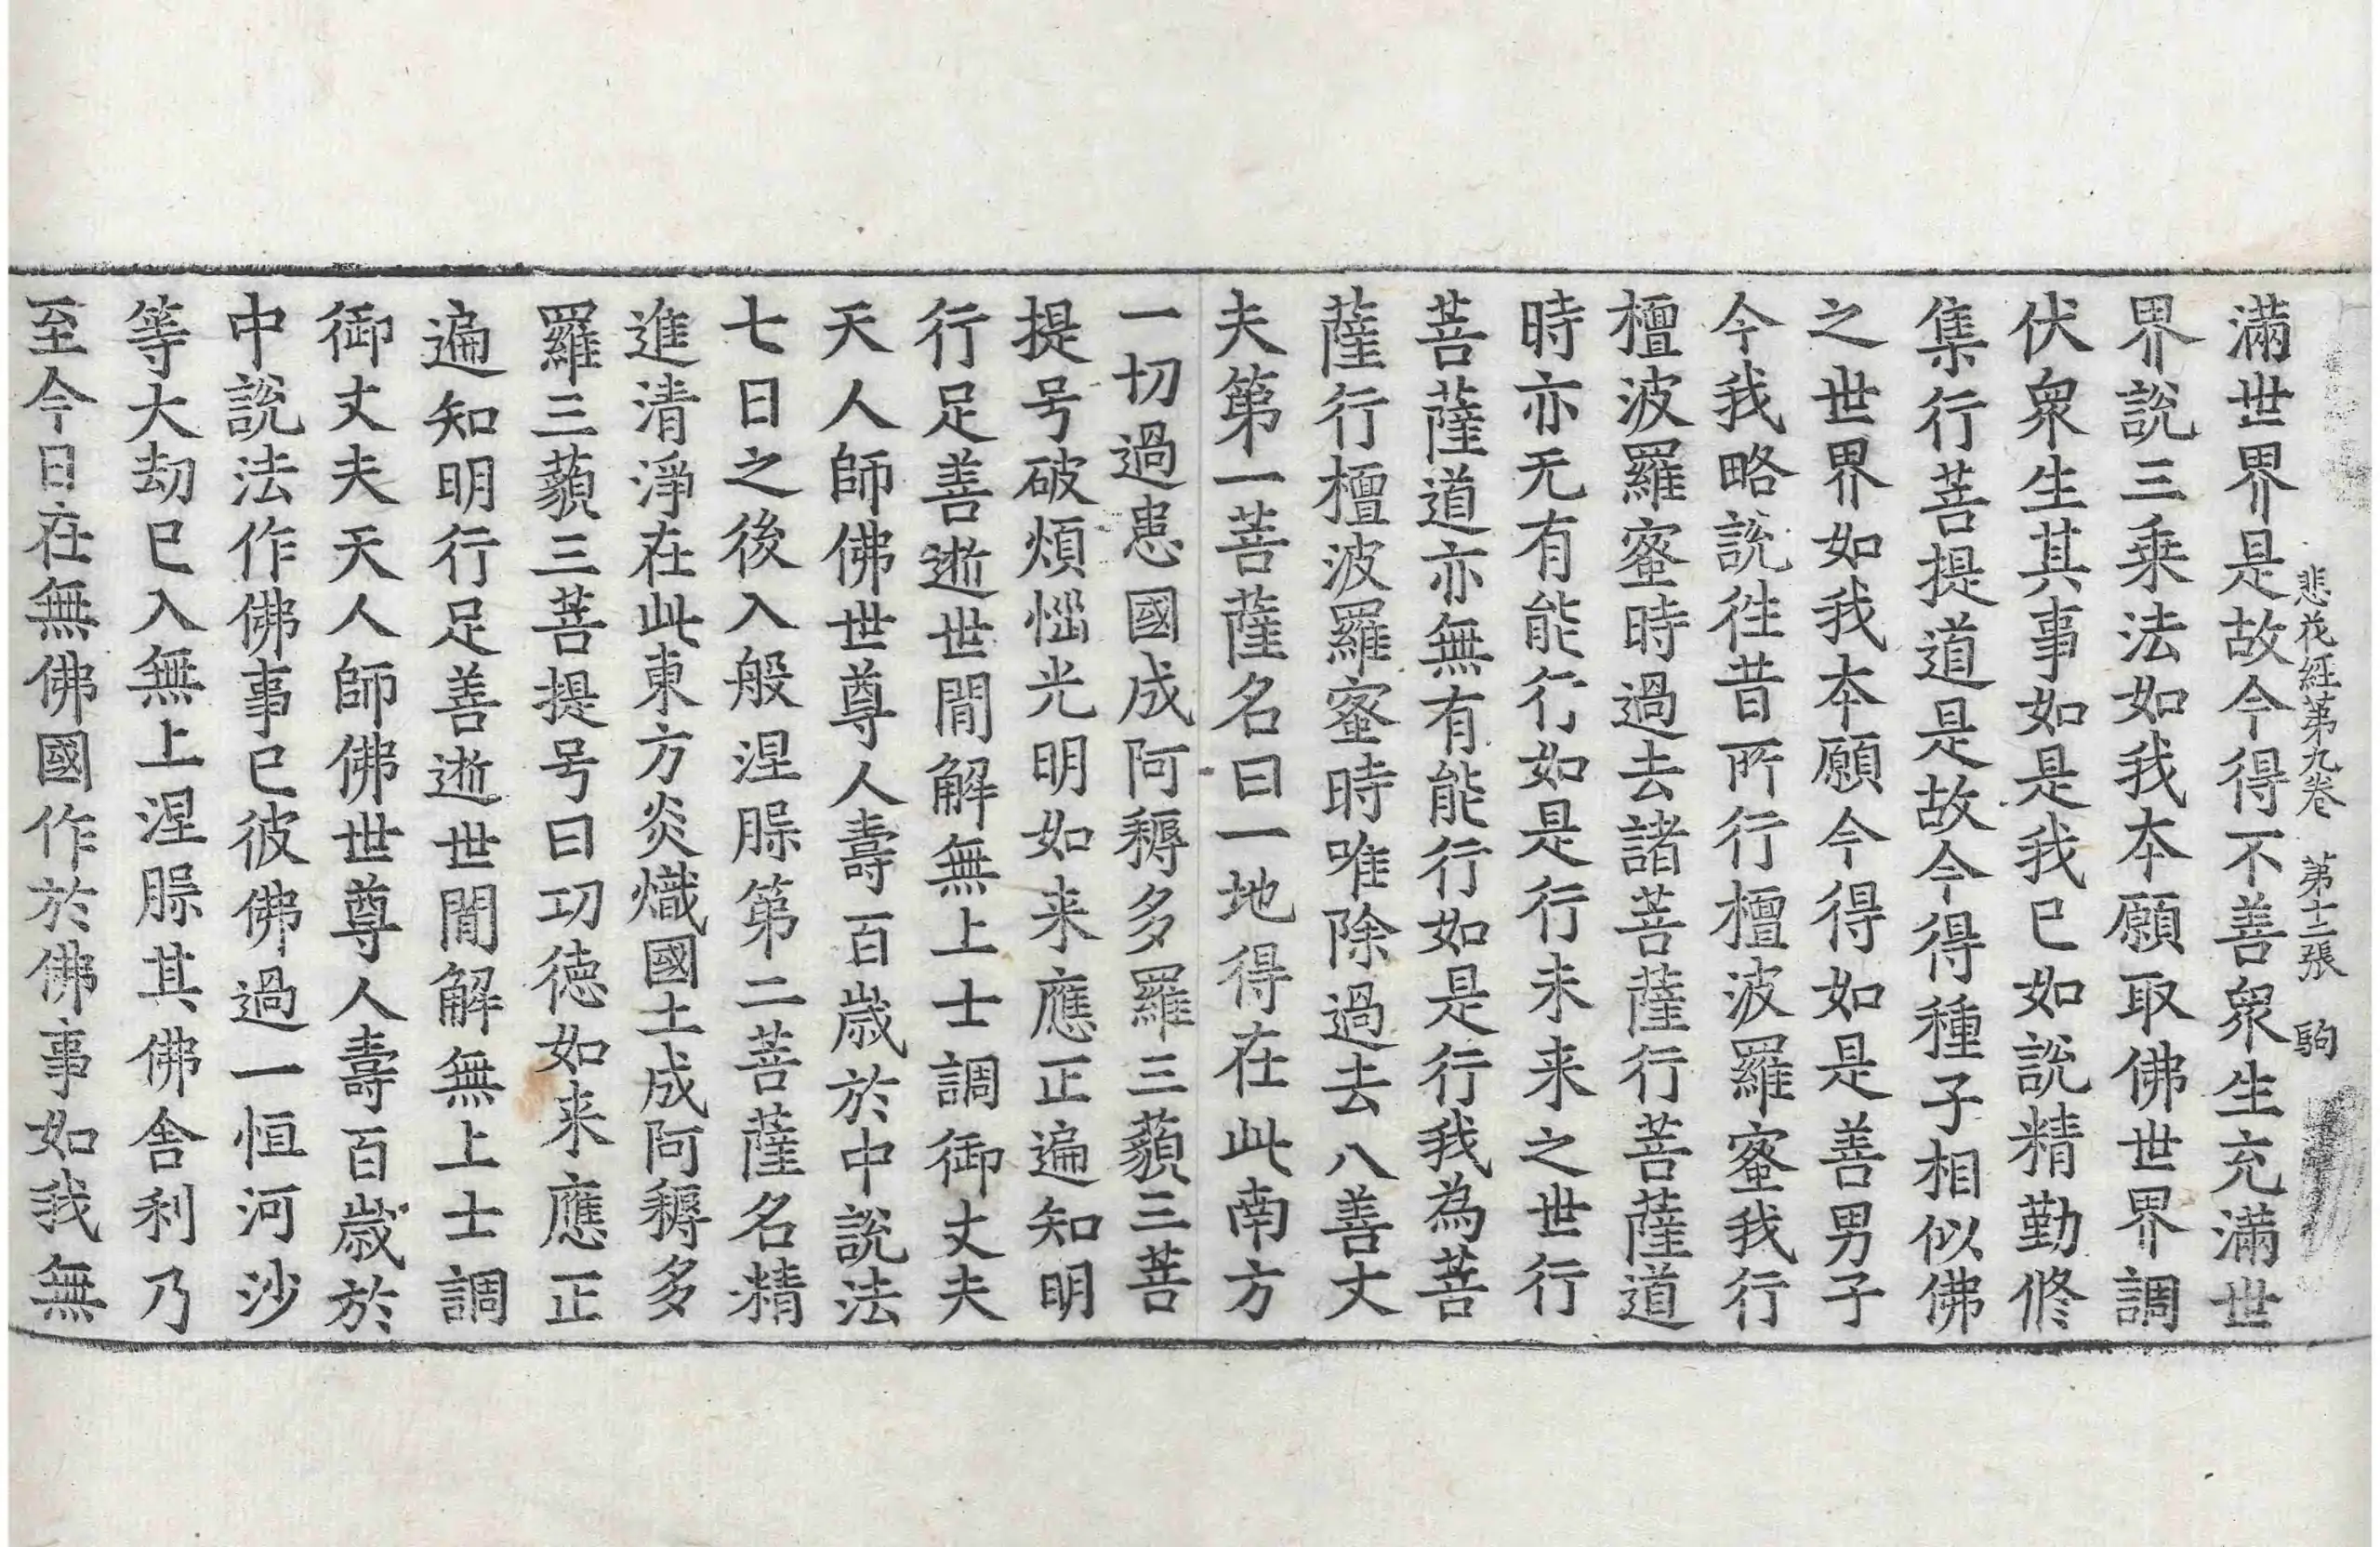 悲花経第九卷　第十二張　駒
滿世界是故今得不善衆生充滿世
界說三乗法如我本願取佛世界調
伏衆生其事如是我已如說精勤俢
集行菩提道是故今得種子相似佛
之世界如我本願今得如是善男子
今我略說徃昔所行檀波羅蜜我行
檀波羅蜜時過去諸菩薩行菩薩道
時亦无有能行如是行未来之世行
菩薩道亦無有能行如是行我為菩
薩行檀波羅蜜時唯除過去八善丈
夫第一菩薩名曰一地得在此南方
一切過患國成阿耨多羅三藐三菩
提号破煩惱光明如来應正遍知明
行足善逝世間解無上士調御丈夫
天人師佛世尊人壽百歲於中說法
七日之後入般涅脲第二菩薩名精
進清淨在此東方炎熾國土成阿耨多
羅三藐三菩提号曰功徳如来應正
遍知明行足善逝世間解無上士調
御丈夫天人師佛世尊人壽百歲於
中說法作佛事已彼佛過一恒河沙
等大劫已入無上涅脲其佛舍利乃
至今日在無佛國作於佛事如我無